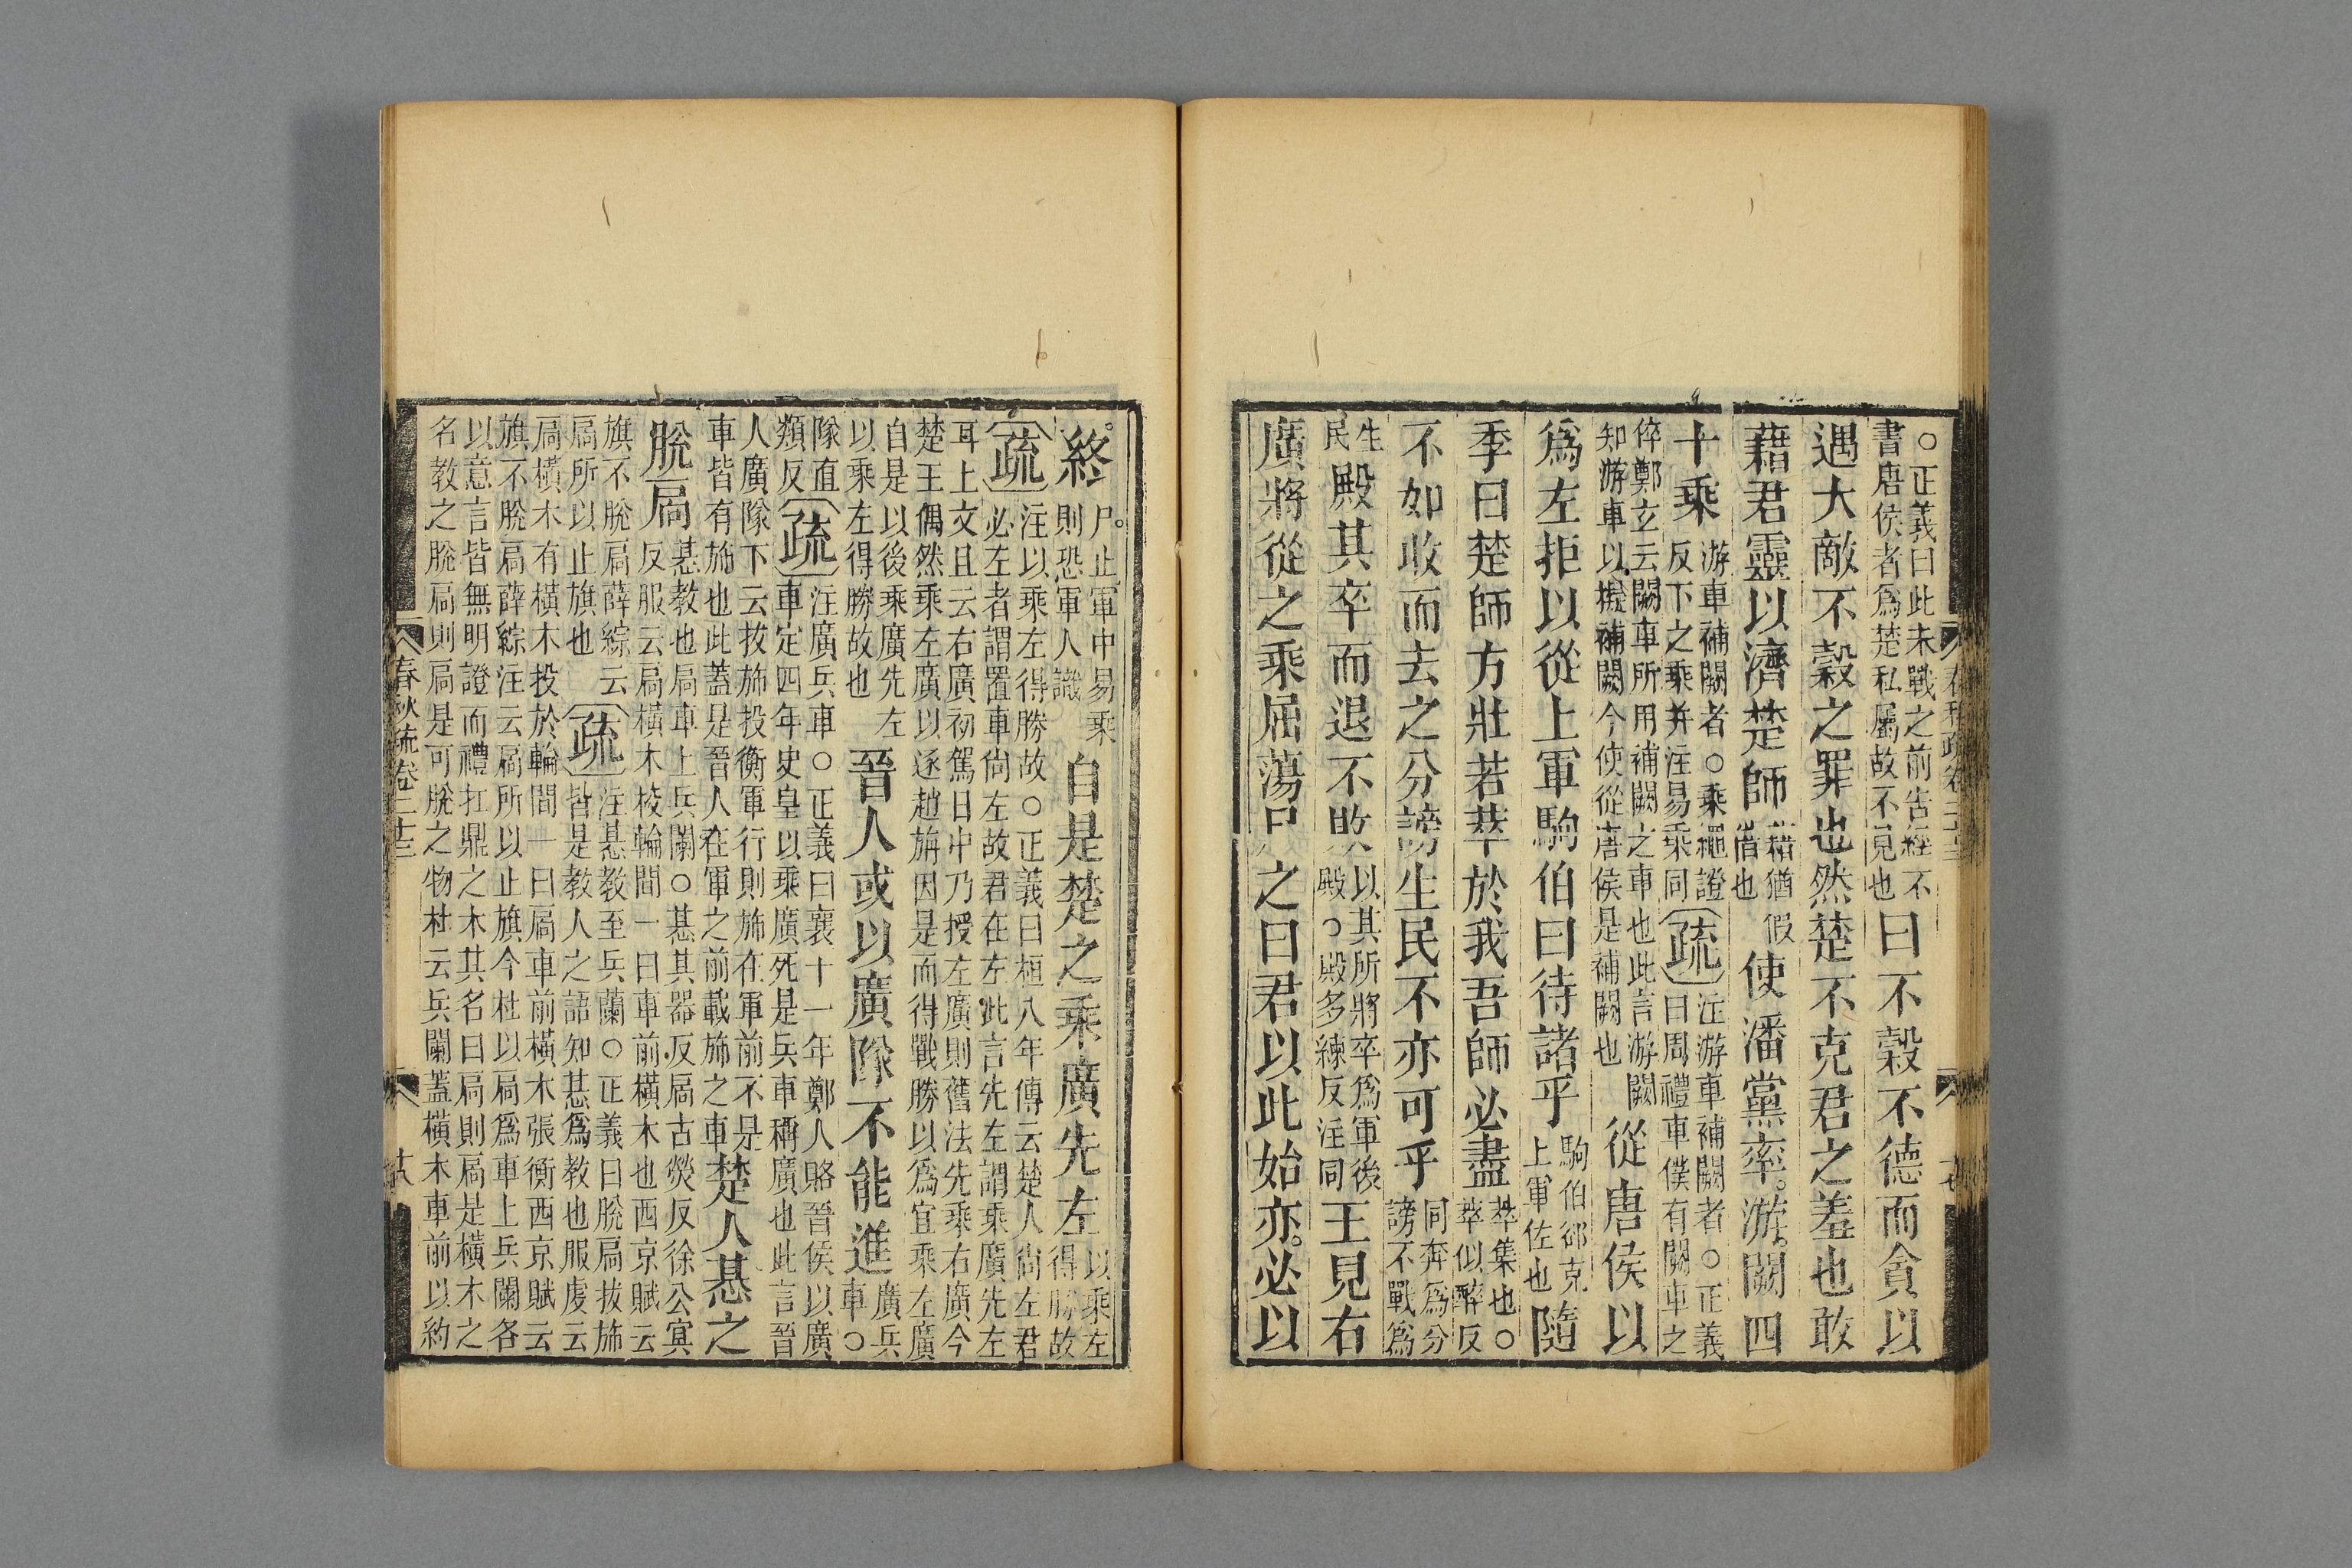 ○正義曰此未戰之前告經不
書唐侯者爲楚私屬故不見也
曰不穀不德而貪以
遇大敵不穀之罪也然楚不克君之羞也敢
藉君靈以濟楚師
藉猶假
借也
使潘黨率游闕四
十乘
游車補闕者○乘繩證
反下之乘并注易乘同
疏
注游車補闕者○正義
曰周禮車僕有闕車之
倅鄭玄云闕車所用補闕之車也此言游闕
知游車以擬補闕今使從唐侯是補闕也
從唐侯以
爲左拒以從上軍駒伯曰待諸乎
駒伯郤克
上軍佐也
隨
季曰楚師方壯若萃於我吾師必盡
萃集也○
萃似醉反
不如收而去之分謗生民不亦可乎
同奔爲分
謗不戰爲
生
民
殿其卒而退不敗
以其所將卒爲軍後
殿○殿多練反注同
王見右
廣將從之乘屈蕩尸之曰君以此始亦必以
終
尸止軍中易乘
則恐軍人識
自是楚之乘廣先左
以乘左
得勝故
疏
注以乘左得勝故○正義曰桓八年傳云楚人尙左君
必左左者謂置車尙左故君在左此言先左謂乘廣先左
耳上文且云右廣初駕日中乃授左廣則舊法先乘右廣今
楚王偶然乘左廣以逐趙旃因是而得戰勝以爲宜乘左廣
自是以後乘廣先左
以乘左得勝故也
晉人或以廣隊不能進
廣兵
車○
隊直
類反
疏
注廣兵車○正義曰襄十一年鄭人賂晉侯以廣
車定四年史皇以乘廣死是兵車稱廣也此言晉
人廣隊下云拔旆投衡軍行則旆在軍前不是
車皆有旆也此蓋是晉人在軍之前載旆之車
楚人惎之
脫扃
惎教也扃車上兵闌○惎其器反扃古熒反徐公冥
反服云扃橫木校輪間一曰車前橫木也西京賦云
旗不脫扃薛綜云
扃所以止旗也
疏
注惎教至兵蘭○正義曰脫扃拔旆
皆是教人之語知惎爲教也服虔云
扃橫木有橫木投於輪間一曰扃車前橫木張衡西京賦云
旗不脫扃薛綜注云扃所以止旗今杜以扃爲車上兵闌各
以意言皆無明證而禮扛鼎之木其名曰扃則扃是橫木之
名教之脫扃則扃是可脫之物杜云兵闌蓋橫木車前以約
春秋疏卷二十三